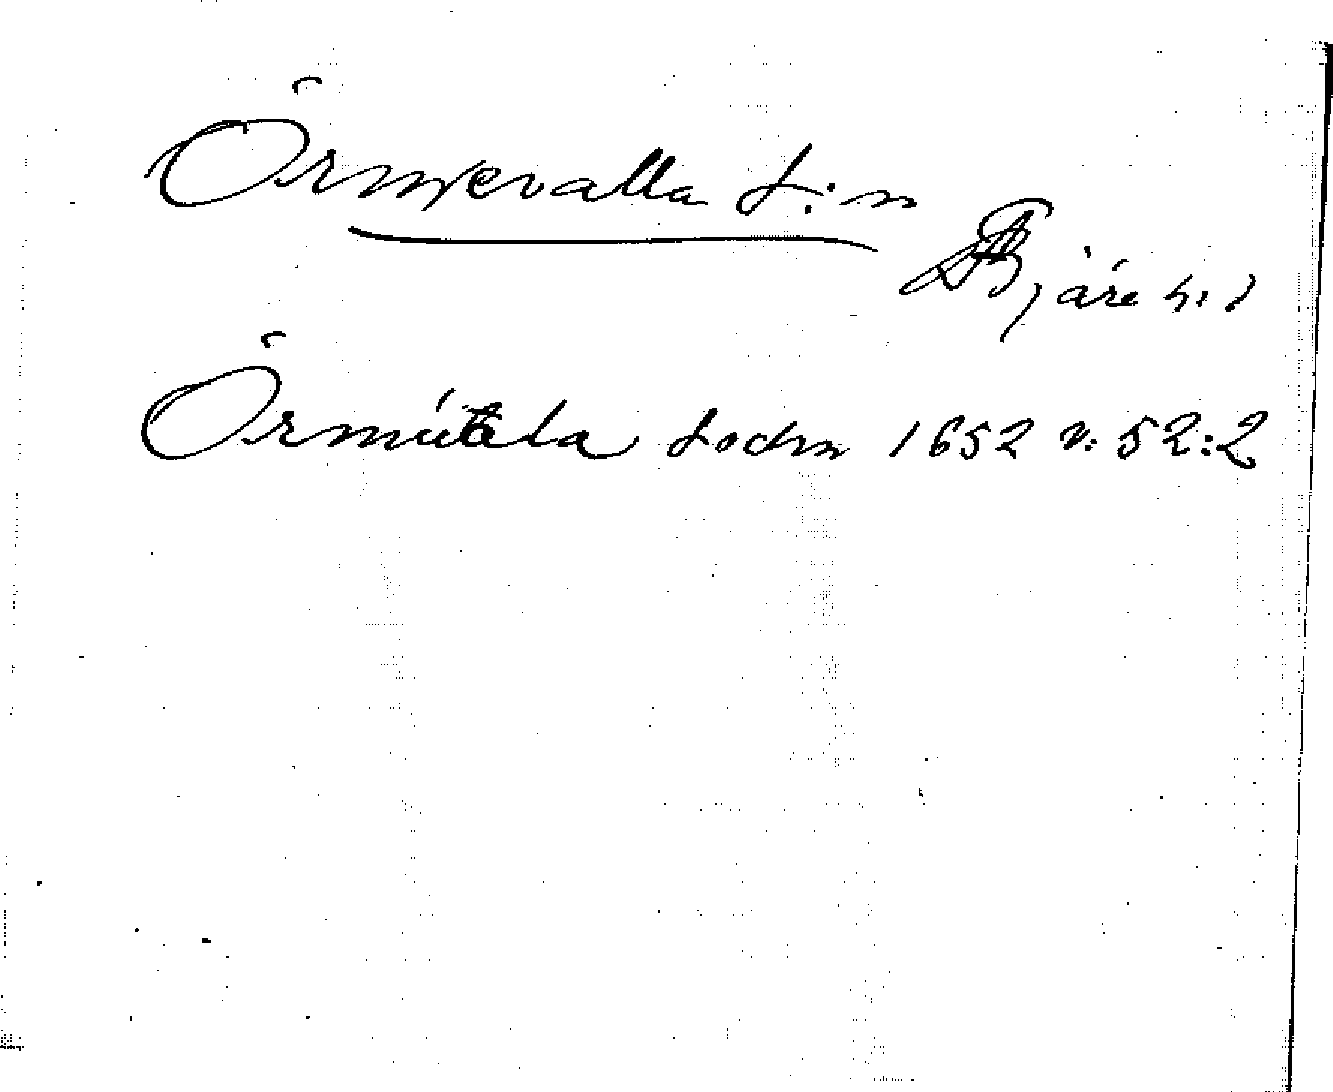 Örmjevalla s:n
Bjäre h.d
Örmútala Sochn 1652 v. 52:2